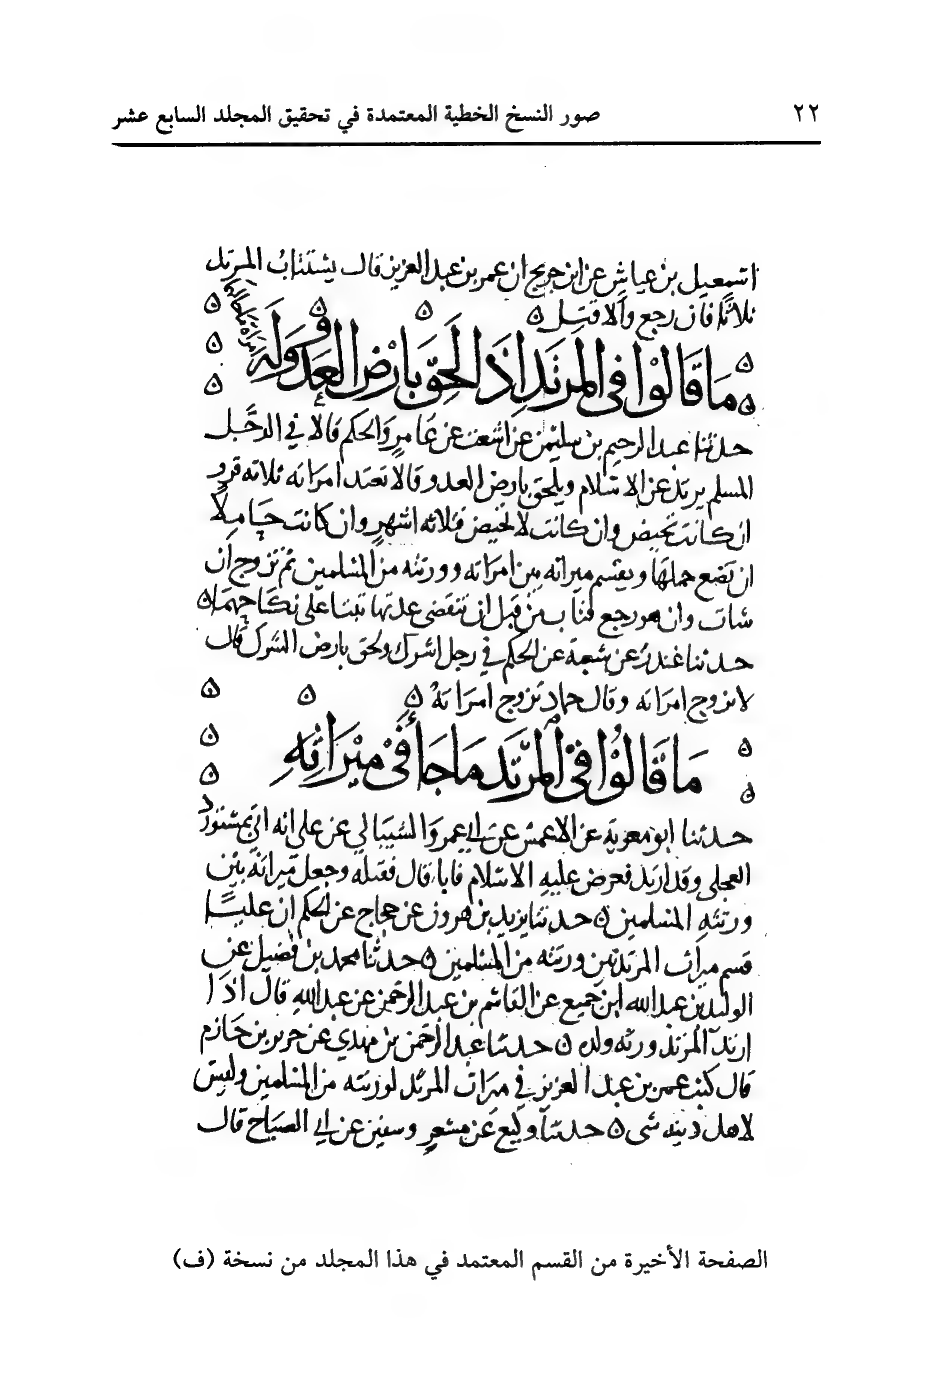 ٢٢ صور النسخ الخطية المعتمدة في تحقيق المجلد السابع عشر
اسمعيل بن عياش عن ابن جريج ان عمر بن عبد العزيز قال يستتاب المرتد
ثلاثا فان رجع والا قتل
ما قالوا في المرتد اذا لحق بارض العدو وله
امراة ما حالها
حدثنا عبد الرحيم بن سليمن عن اشعث عن عامر والحكم قالا في الرجل
المسلم يرتد عن الاسلام ويلحق بارض العدو قالا تعتد امراته ثلاثه قرو
ان كانت تحيض وان كانت لا تحيض فثلاثه اشهر وان كانت حاملا
ان تضع حملها ويقسم ميراثه بين امراته وورثته من المسلمين ثم تزوج ان
شات وان هو رجع فتاب من قبل ان تنقضي عدتها ثبتا على نكاحهما
حدثنا غندر عن شعبة عن الحكم في رجل اشرك ولحق بارض الشرك قال
لا تزوج امراته وقال حماد تزوج امراته
ما قالوا في المرتد ما جا في ميراثه
حدثنا ابو معوية عن الاعمش عن ابي عمرو الشيباني عن على انه اتي بمستورد
العجلي وقد ارتد فعرض عليه الاسلام فابا قال فقتله وجعل ميراثه بين
ورثته المسلمين حدثنا يزيد بن هرون عن حجاج عن الحكم ان عليا
قسم ميراث المرتد بين ورثته من المسلمين حدثنا محمد بن فضيل عن
الوليد بن عبد الله ابن جميع عن القاسم بن عبد الرحمن عن عبد الله قال اذا
ارتد المرتد ورثه ولده حدثنا عبد الرحمن بن مهدي عن جرير بن حازم
قال كتب عمر بن عبد العزيز في ميراث المرتد لورثته من المسلمين وليس
لاهل دينه شي حدثنا وكيع عن مسعر وسفين عن ابي الصباح قال
الصفحة الأخيرة من القسم المعتمد في هذا المجلد من نسخة (ف)